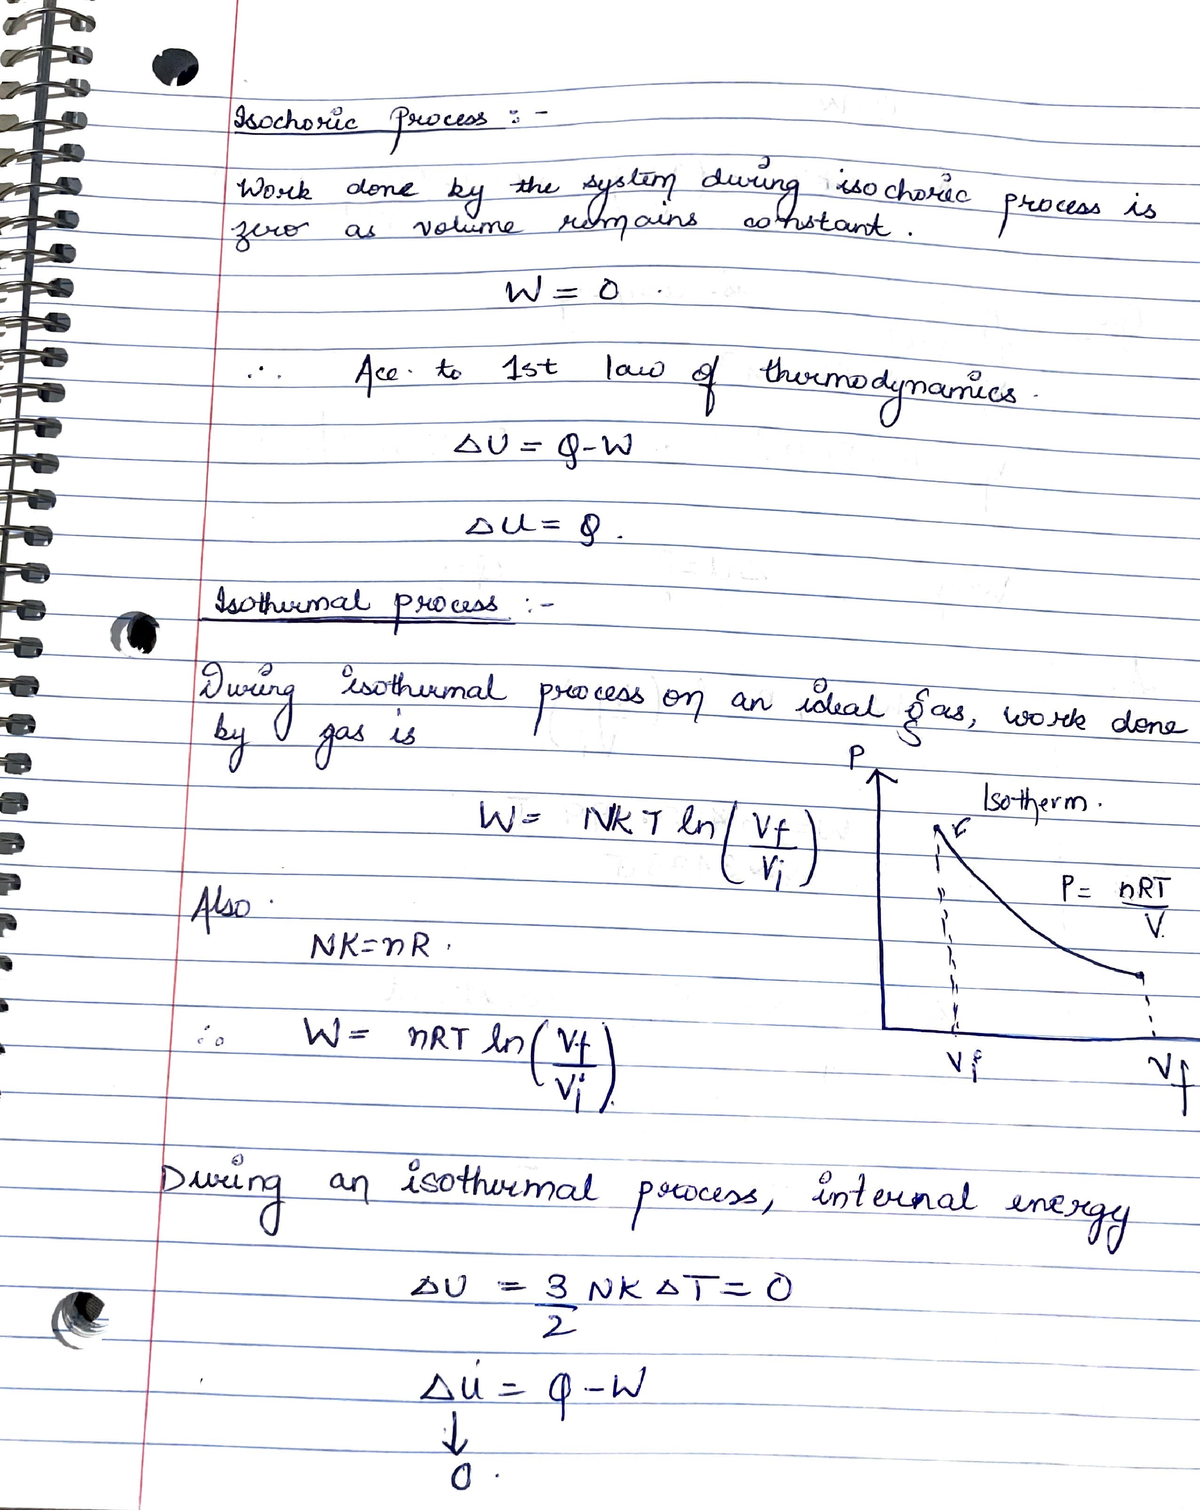 Isochoric Process :-
Work done by the system during isochoric process is
zero as volume remains constant.
W = 0.
∴ Acc. to 1st law of thermodynamics.
ΔU = Q-W
ΔU = Q.
Isothermal process :-
During isothermal process on an ideal gas, work done
by gas is
W = NKT ln(Vf/Vi)
P
Isotherm.
P = nRT/V.
Vi
Vf
Also.
NK=nR.
∴ W = nRT ln(Vf/Vi).
During an isothermal process, internal energy
ΔU = 3/2 NKΔT = 0
ΔU = Q-W
↓
0.